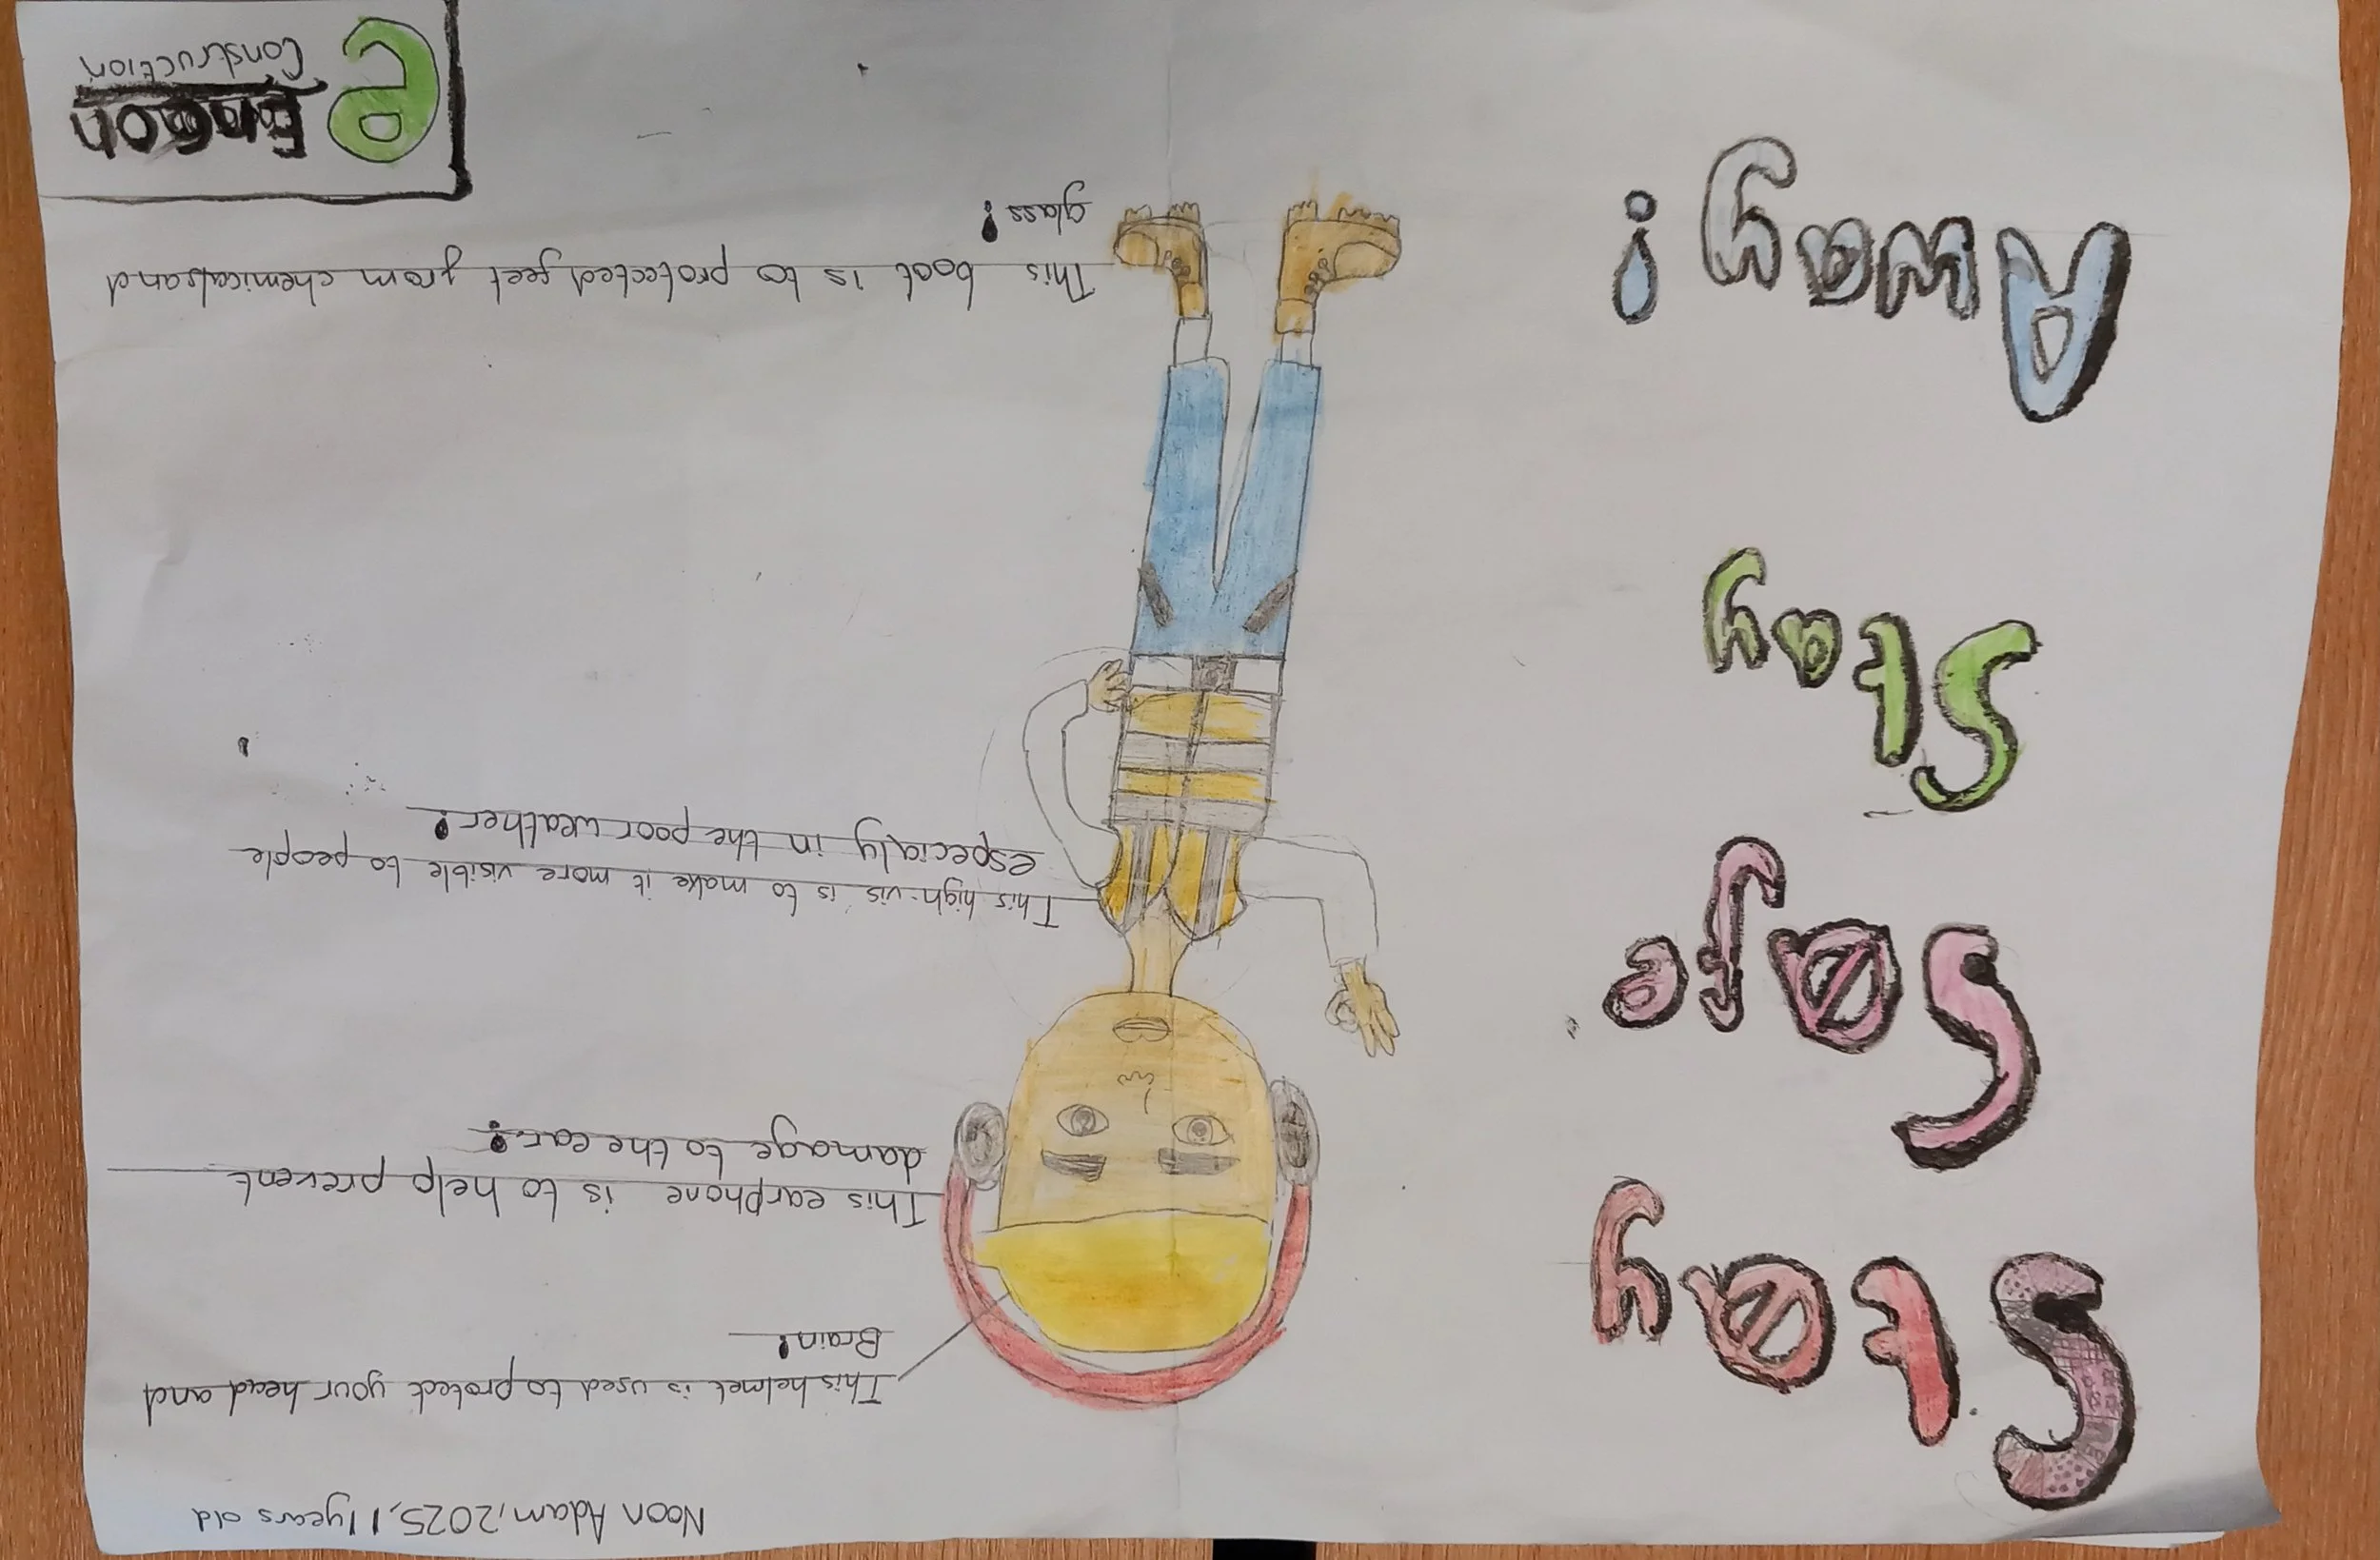 Noon Adam, 2025, 11 years old
Stay
Safe
Stay
Away!
This helmet is used to protect your head and
Brain!
This earphone is to help prevent
damage to the ear!
This high-vis is to make it more visible to people
especialy in the poor weather!
This boot is to protected feet from chemicals and
glass!
e
Engon
Construction